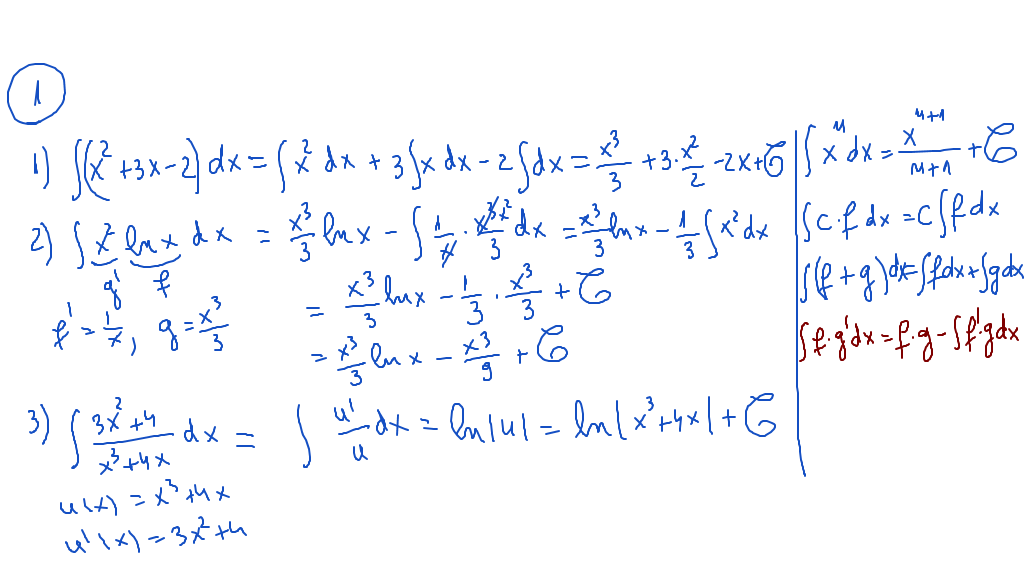 1
1) ∫(x² + 3x - 2) dx = ∫ x² dx + 3 ∫ x dx - 2 ∫ dx = x³/3 + 3 · x²/2 - 2x + C
2) ∫ x² ln x dx = x³/3 ln x - ∫ 1/x · x³/3 x² dx = x³/3 ln x - 1/3 ∫ x² dx
g' f
f' = 1/x, g = x³/3
= x³/3 ln x - 1/3 · x³/3 + C
= x³/3 ln x - x³/9 + C
3) ∫ (3x² + 4)/(x³ + 4x) dx = ∫ u'/u dx = ln|u| = ln|x³ + 4x| + C
u(x) = x³ + 4x
u'(x) = 3x² + 4
∫ xⁿ dx = xⁿ⁺¹/(n+1) + C
∫ c · f dx = c ∫ f dx
∫(f + g) dx = ∫ f dx + ∫ g dx
∫ f · g' dx = f · g - ∫ f' · g dx